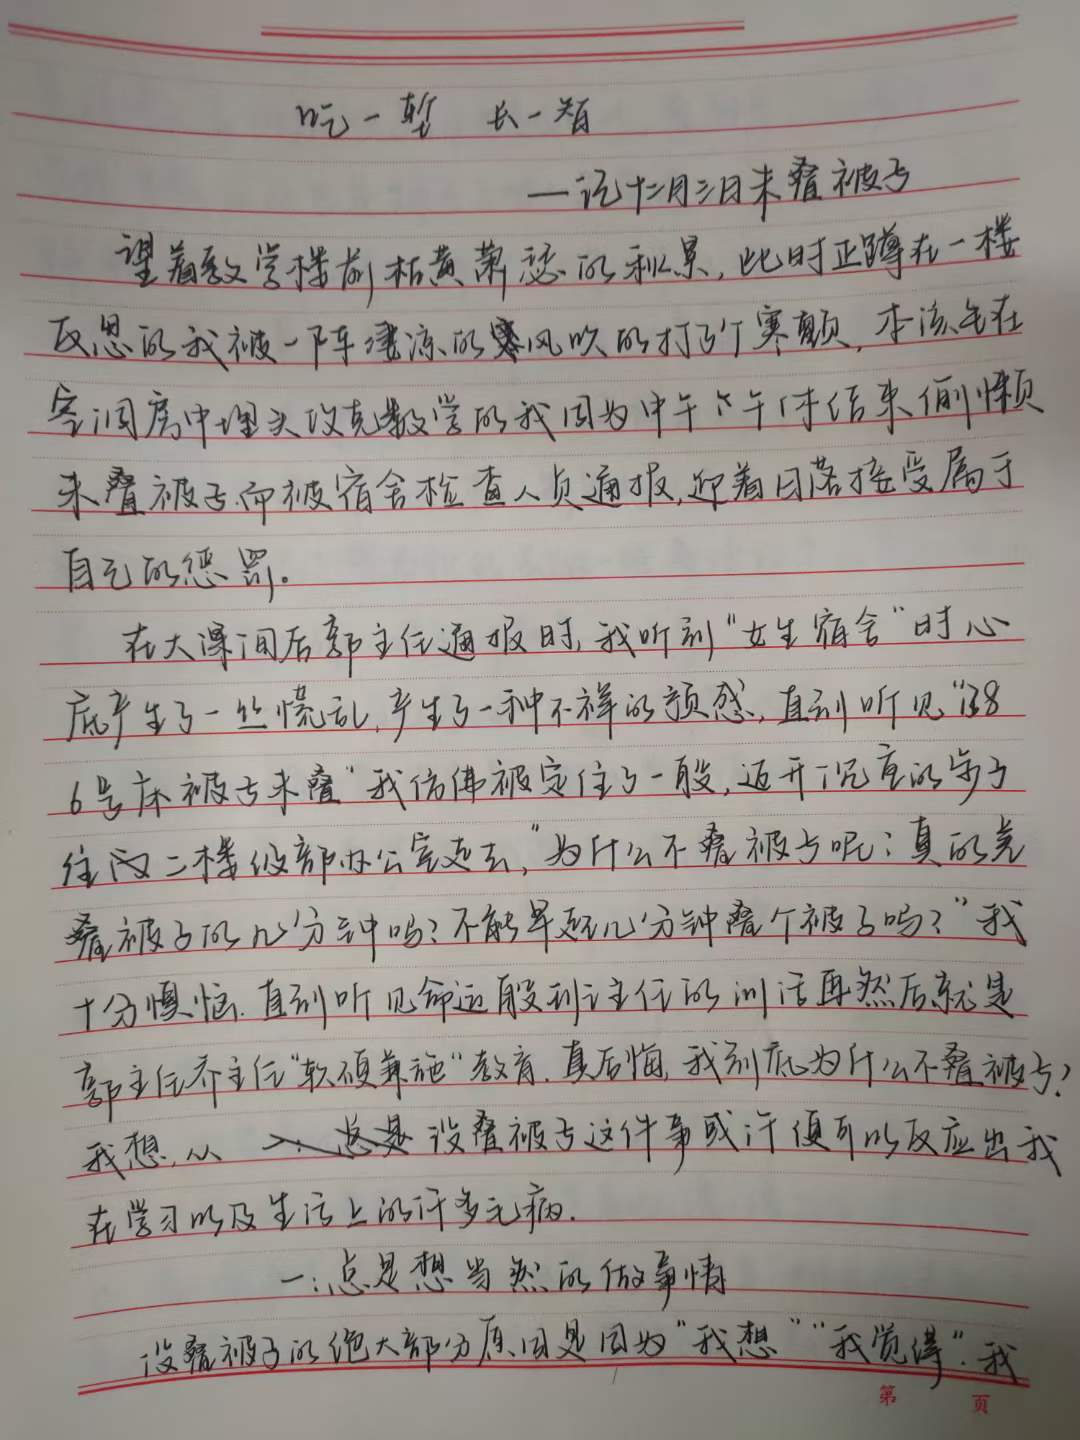 吃一堑 长一智
——记十二月三日未叠被子
望着教学楼前枯黄萧瑟的秋景，此时正蹲在一楼
反思的我被一阵凄凉的寒风吹的打了个寒颤，本该坐在
室间房中埋头攻克数学的我因为中午下午休结束偷懒
未叠被子而被宿舍检查人员通报，迎着日落接受属于
自己的惩罚。
在大课间后郭主任通报时，我听到“女生宿舍”时心
底产生了一丝慌乱，产生了一种不祥的预感，直到听见“138
6号床被子未叠”我仿佛被定住了一般，迈开沉重的步子
往西二楼级部办公室走去，“为什么不叠被子呢？真的差
叠被子的几分钟吗？不能早起几分钟叠个被子吗？”我
十分懊恼，直到听见命运般到主任的训话再然后就是
郭主任乔主任“软硬兼施”教育，真后悔，我到底为什么不叠被子？
我想，从 没叠被子这件事或许便可以反应出我
在学习以及生活上的许多毛病。
一：总是想当然的做事情
没叠被子的绝大部分原因是因为“我想”“我觉得”，我
第 页